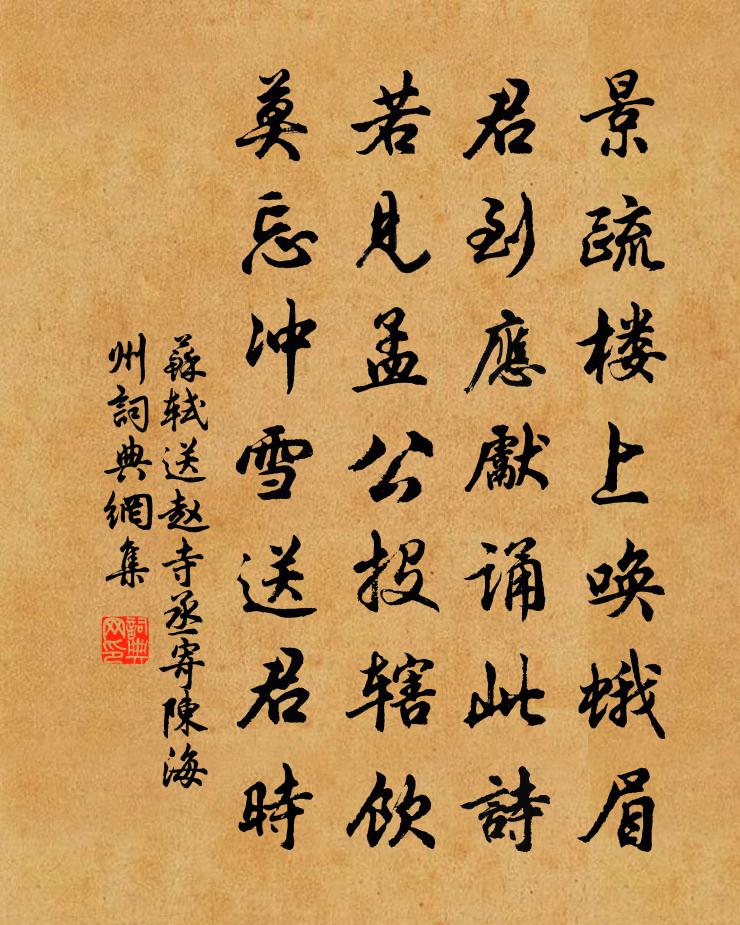 景疏楼上唤蛾眉
君到應獻誦此詩
若見孟公投辖飲
莫忘冲雪送君時
蘇軾送赵寺丞寄陳海
州詞典網集
詞典网印